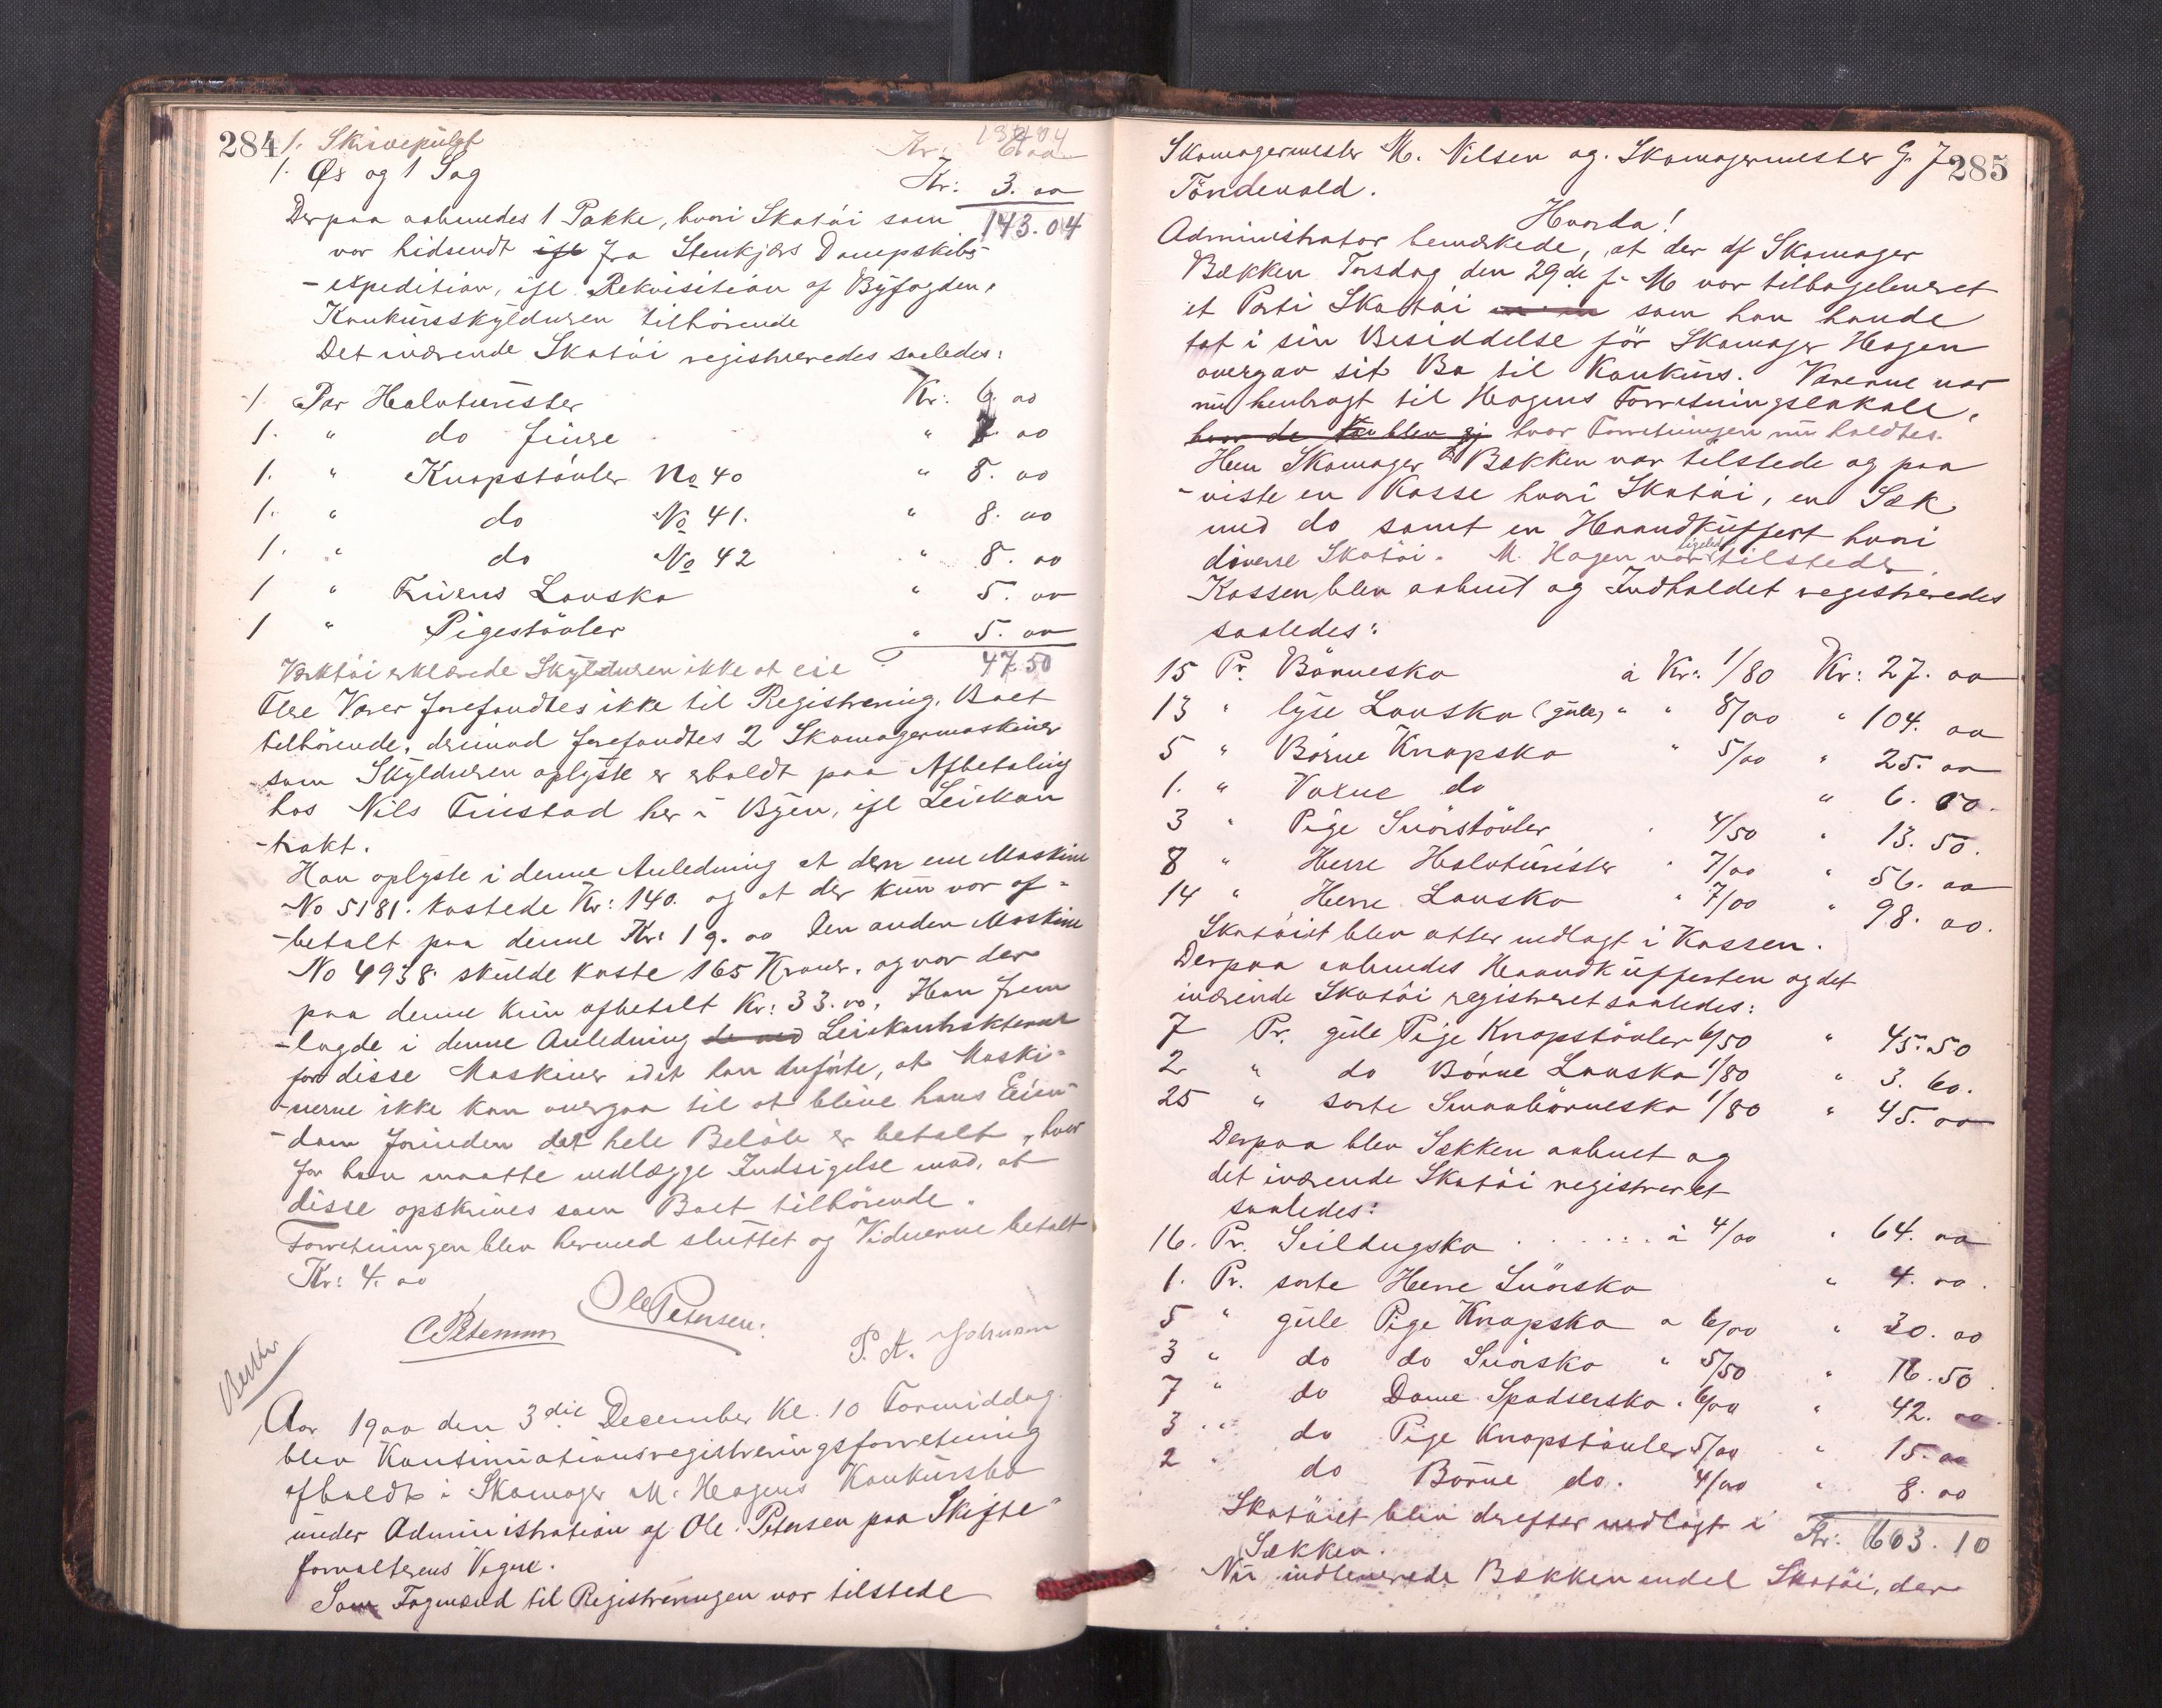 284
1. Skivepulgt Kr: 6.00
1. Øx og 1 Sag Kr: 3. 00
143.04
Derpaa aabnedes 1 Pakke, hvori Skotöi som
var hidsendt ifl fra Stenkjærs Dampskibs-
-expedition, ifl. Rekvisition af Byfogden,
Konkursskyldneren tilhörende
Det værende Skotöi registreredes saaledes:
1 Par Halvturister Kr: 6. 00
1. " do finere " 7. 00
1. " Knapstövler No 40 " 8. 00
1. " do No 41. " 8. 00
1. " do No 42 " 8. 00
1 " Fruens Lavsko " 5. 00
1 " Pigestövler " 5. 00
Værktöi erklærede Skyldneren ikke at eie 47.50
Flere Varer forefandtes ikke til Registrering, Boet
tilhörende, derimod forefandtes 2 Skomagermaskiner
som Skyldneren oplyste er erholdt paa Afbetaling
hos Nils Finstad her i Byen, ifl Leiekon
-trakt.
Han oplyste i denne Anledning at den ene Maskine
No 5181. kostede Kr: 140. og at der kun var af-
-betalt paa denne Kr: 19. 00 Den anden Maskine
No 4938. skulde koste 165 Kroner. og var der
paa denne kun afbetalt Kr: 33.00. Han frem
-lagde i denne Anledning de ved Leiekontrakterne
for disse Maskiner idet han anförte, at Maski-
-nerne ikke kan overgaa til at blive hans Eien-
-dom forinden det hele Belöb er betalt, hvor
for han maatte nedlægge Indsigelse mod, at
disse opskrives som Boet tilhörende.
Forretningen blev hermed sluttet og Vidnerne betalt
Kr: 4. 00
C Petersen Ole Petersen. P. A. Johnsen
Aar 1900 den 3die December Kl. 10 Formiddag
blev Kontinuationsregistreringsforretning
afholdt i Skomager M. Hagens Konkursbo
under Administration af Ole Petersen paa Skifte-
forvalterens Vegne.
Som Fagmænd til Registreringen var tilstede
285
Skomagermester M. Nilsen og Skomagermester G. J.
Töndevold.
Hvorda!
Administrator bemærkede, at der af Skomager
Bækken Torsdag den 29de f. M var tilbageleveret
et Parti Skotöi som han havde
tat i sin Besiddelse för Skomager Hagen
overgav sit Bo til Konkurs. Varerne var
nu henbragt til Hagens Forretningslokale,
hvor de blev gj hvor Forretningen nu holdtes.
Herr Skomager Bækken var tilstede og paa
-viste en Kasse hvori Skotöi, en Sæk
med do samt en Haandkuffert hvori
diverse Skotöi. M. Hagen var ligeledes tilstede.
Kassen blev aabnet og Indholdet registreredes
saaledes:
15 Pr. Börnesko à Kr: 1/80 Kr: 27. 00
13 " lyse Lavsko (gule) " " 8/00 " 104. 00
5 " Börne Knapsko " 5/00 " 25. 00
1. " Voxne do " 6. 00.
3 " Pige Snörstövler " 4/50 " 13. 50.
8 " Herre Halvturister " 7/00 " 56. 00
14 " Herre Lavsko " 7/00 " 98. 00.
Skotöiet blev atter nedlagt i Kassen.
Derpaa aabnedes Haandkufferten og det
ivärende Skotöi registreret saaledes:
7 Pr. gule Pige Knapstövler 6/50 " 45.50
2 " do Börne Lavsko 1/80 " 3. 60.
25 " sorte Smaabörnesko 1/80 " 45. 00
Derpaa blev Sækken aabnet og
det iværende Skotöi registreret
saaledes:
16. Pr. Seildugsko . . . . . . à 4/00 " 64. 00
1. Pr. sorte Herre Snörsko " 4. 00.
5 " gule Pige Knapsko à 6/00 " 30. 00
3 " do do Snörsko " 5/50 " 16. 50.
7 " do Dame Spadsersko " 6/00 " 42. 00.
3 " do Pige Knapstövler 5/00 " 15. 00
2 " do Börne do. 4/00 " 8. 00
Skotöiet blev derefter nedlagt i Kr: 603. 10
Sækken.
Nu indleverede Bækken endel Skotöi, der